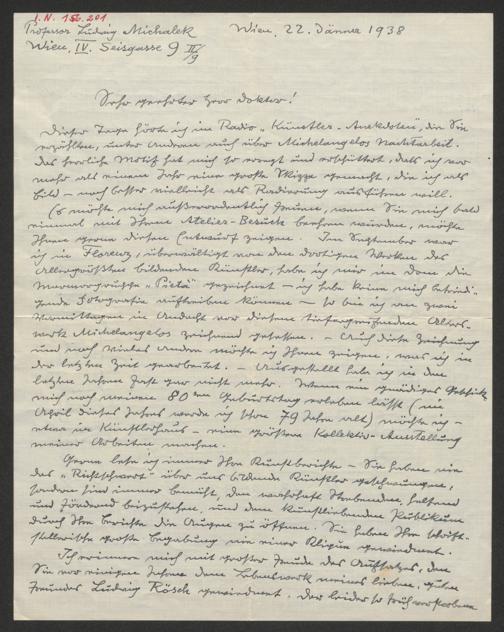 I.N. 156.201
Professor Ludwig Michalek Wien, 22. Jänner 1938
Wien, IV. Seisgasse 9 II/9
Sehr geehrter Herr Doktor!
Dieser Tage hörte ich im Radio „Künstler-Anekdoten", die Sie
erzählten, unter anderem auch über Michelangelos Nachturteil.
Das herrliche Motif hat mich so erregt und erschüttert, daß ich vor
mehr als einem Jahr eine große Skizze gemacht, die ich als
Bild – noch besser vielleicht als Radierung ausführen will.
Es möchte mich außerordentlich freuen, wenn Sie mich bald
einmal mit Ihrem Atelier-Besuch beehren würden, möchte
Ihnen gerne diesen Entwurf zeigen. Im September war
ich in Florenz, überwältigt von den dortigen Werken des
Allergrößten bildenden Künstler, habe ich nur im Dom die
Marmorgruppe „Pietà" gezeichnet – ich habe keine mich befriedi-
gende Fotografie auftreiben können – so bin ich an zwei
Vormittagen in Andacht vor diesem tiefergreifenden Alters-
werk Michelangelos zeichnend gesessen. – Auch diese Zeichnung
und noch vieles andere möchte ich Ihnen zeigen, was ich in
der letzten Zeit gearbeitet. – Ausgestellt habe ich in den
letzten Jahren fast gar nicht mehr. Wenn ein gnädiges Geschick
mich noch meinen 80ten Geburtstag erleben läßt (im
April dieses Jahres werde ich schon 79 Jahre alt) möchte ich –
etwa im Künstlerhaus – eine größere Kollektiv-Ausstellung
meiner Arbeiten machen.
Gerne lese ich immer Ihre Kunstberichte – Sie haben nie
das „Richtschwert" über uns bildende Künstler geschwungen,
sondern sind immer bemüht, den wahrhaft Strebenden, helfend
und fördernd beizustehen, und dem kunstliebenden Publikum
durch Ihre Berichte die Augen zu öffnen. Sie haben Ihre schrift-
stellerische große Begabung nie einer Klique gewidmet.
Ich erinnere mich mit großer Freude des Aufsatzes, den
Sie vor einigen Jahren dem Lebenswerk meines lieben, guten
Freundes Ludwig Rösch gewidmet. Der leider so früh verstorbene